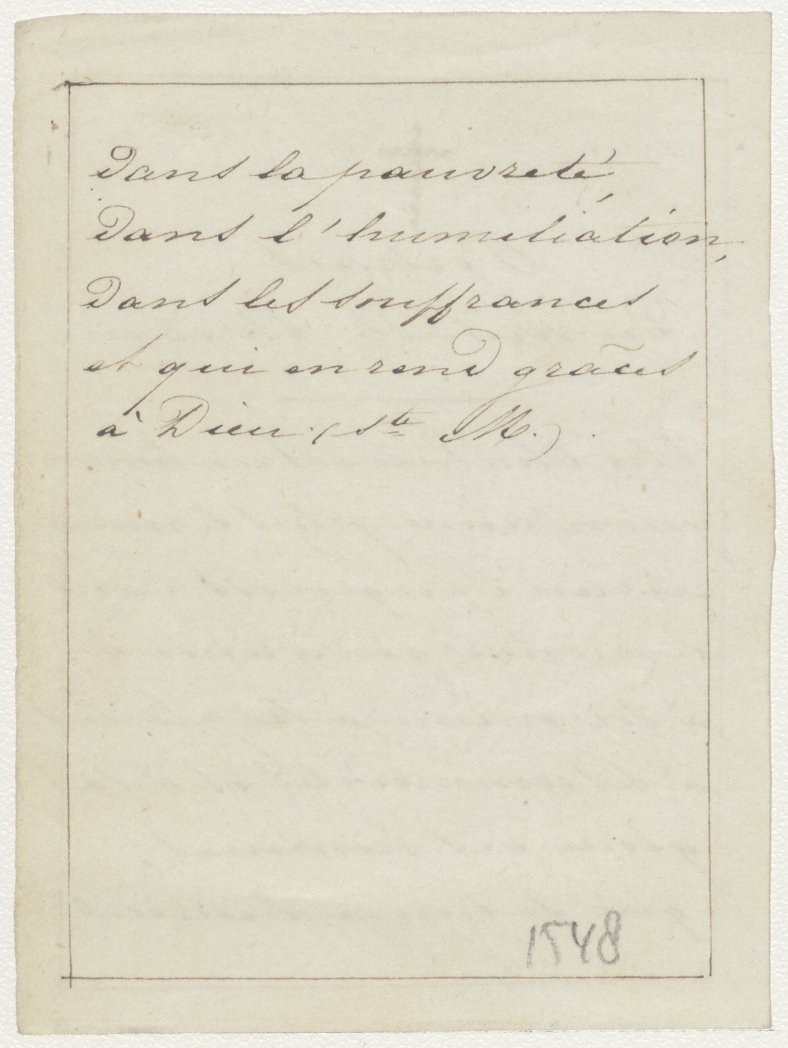 Dans la pauvreté,
Dans l'humiliation,
Dans les souffrances
et qui en rend grâces
à Dieu. (Ste M.).
1548